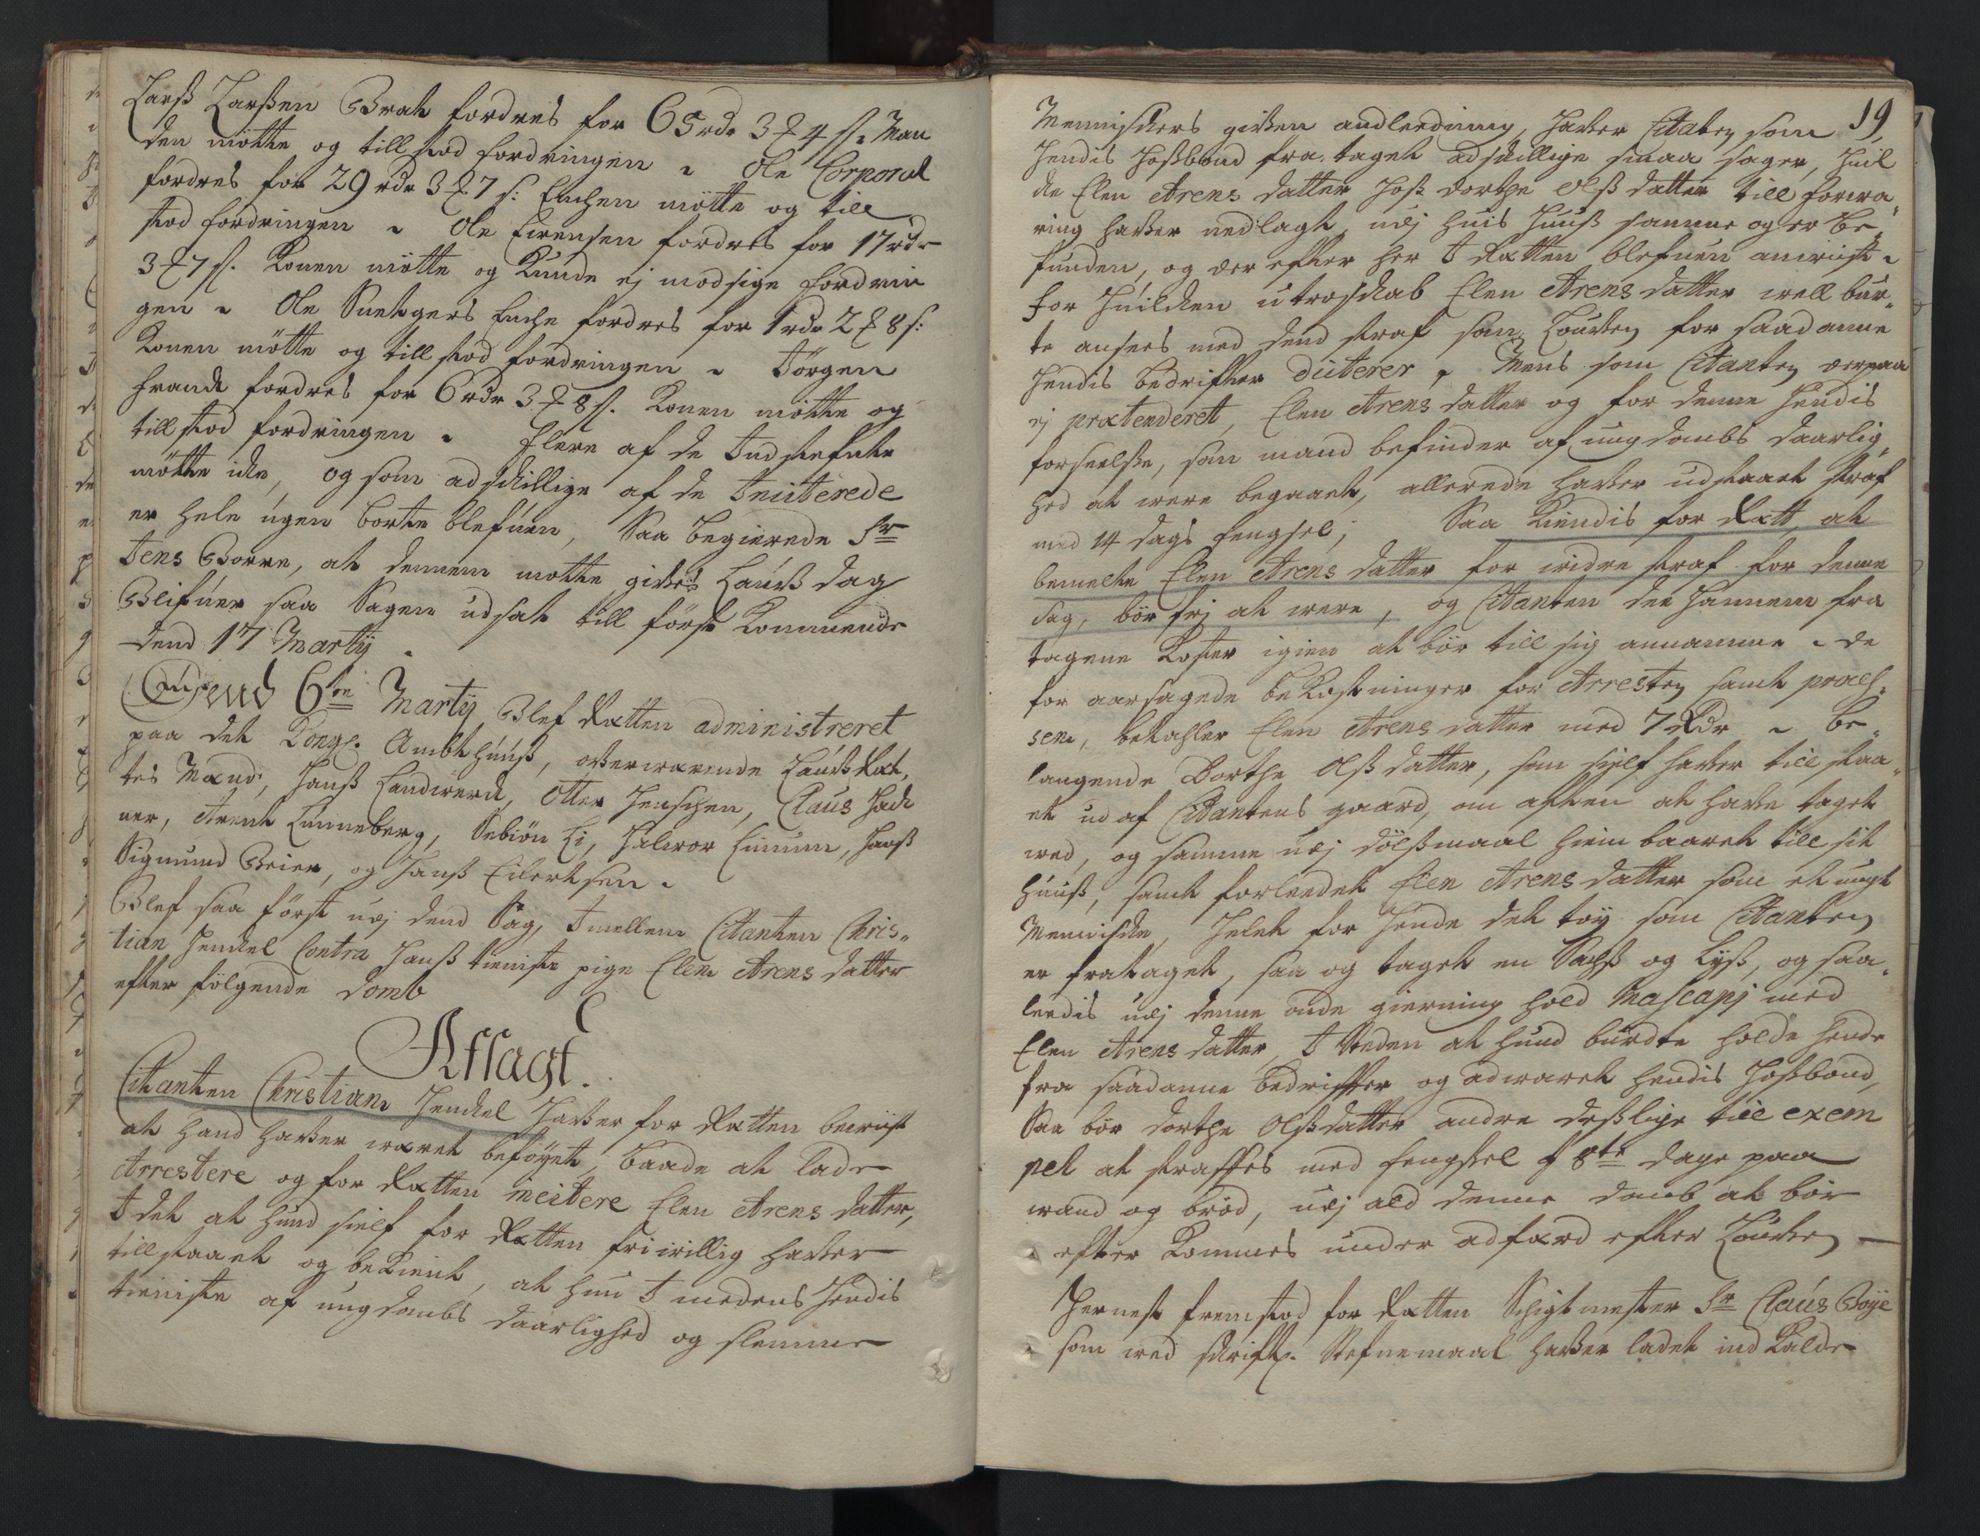 Larß Larßen Brak fordres for 65 rdr 3 ₰ 4 s. Man
den mötte og till stod fordringen. Ole Corporal
fordres for 29 rdr 3 ₰ 7 s: Enchen mötte og till
stod fordringen. Ole Eirensen fordres for 17 rdr
3 ₰ 7 s. Konen mötte og Kunde ej modsige fordrin
gen. Ole Enche fordres for 1 rdr 2 ₰ 8 s:
Konen mötte og till stod fordringen. Jörgen
frande fordres for 6 rdr 3 ₰ 8 s. Konen mötte og
till stod fordringen. Flere af de Indstefnte
mötte icke, og som adskillige af de Inciterede
er hele ugen borte blefuen, Saa begierede Sr
Jens Borre, at dennem motte gifues Laurß dag
Blifuer saa Sagen udsat till först Kommende
Dend 17 Martij.
Dend 6te Martij Blef Rætten administreret
paa det Kongl. Ambthuuß, ofuerwærende Laurß Ræt,
tes Mænd, Hanß Landwerck, Otter Henschen, Claus Hack
ner, Arent Lunneberg, Sebiön Li, Halwor Lunum, Hanß
Sigmund Beier, og Hanß Eilertsen.
Blef saa först udj dend Sag, Imellem Citanten Chris-
tian Henckel Contra Hanß tieniste pige Elen Arens datter
efter fölgende domb
Afsagt.
Citanten Christian Henckel Hafuer for Rætten bewist
at hand hafuer wæret beföyet, baade at lade
Arrestere og for Rætten incitere Elen Arens datter,
I det at hund sielf for Rætten friwillig hafuer
tillstaaet og bekient, at hun I medens Hendis
tieniste af ungdombs daarlighed og slemme
19
Menniskers gifuen andleedning, hafuer Citaten som
Hendis Hoßbond fra taget adskillige smaa sager, Huil
cke Elen Arens datter Hoß dorthe Olß datter till forwa-
ring hafuer nedlagt, udj huis Huuß samme og er be-
funden, og der efter her I Rætten blefuen anwist.
for Huilcken utroskab Elen Arens datter well bur-
te ansees med dend straf som Loufuen for saadanne
Hendis bedrifter dicterer. Mens som Citanten derpaa
ej prætenderet, Elen Arens datter og for denne Hendis
forseelße, som mand befinder af ungdombs daarlig-
hed at were begaaet, allerede hafuer udstaaet straf
med 14 dags fengsel; Saa Kiendis for Rætt, at
bemelte Elen Arens datter for widre straf for denne
sag, bör frj at were, og Citanten dee Hannem fra
tagene Koster igien at bör till sig annamme. De
for aarsagede bekostninger for Arresten samt proces-
sen, betahler Elen Arens datter med 7 Rdr. Be-
langende Dorthe Olßdatter, som sielf hafuer till staa-
et ud af Citantens gaard, om aften at hafue taget
wed, og samme udj dölßmaal hiem baaret till sit
Huuß, samt forleedet Elen Arens datter som et ungt
Menniske, Helet for Hende det töy som Citanten
er frataget, saa og taget en Sachß og Lyß, og saa-
leedis udj denne onde gierning hold Mascapj med
Elen Arens datter, I steden at hund burdte holde hende
fra saadanne bedrifter og adwaret hendis Hoßbond,
Saa bör dorthe Olßdatter andre deßlige till exem
pel at straffes med fengßel I 8te dage paa
wand og bröd, udj ald denne domb at bör
efter Kommes under adfærd efter Loufuen —
Hernest fremstod for Rætten Schigtmester Sr Claus Boye
som wed skriftl. Stefnemaal hafuer ladet ind Kalde